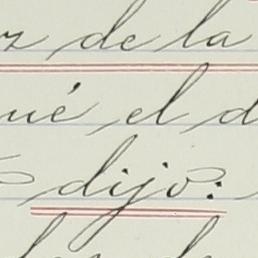 z de la
ué el d
dijo: